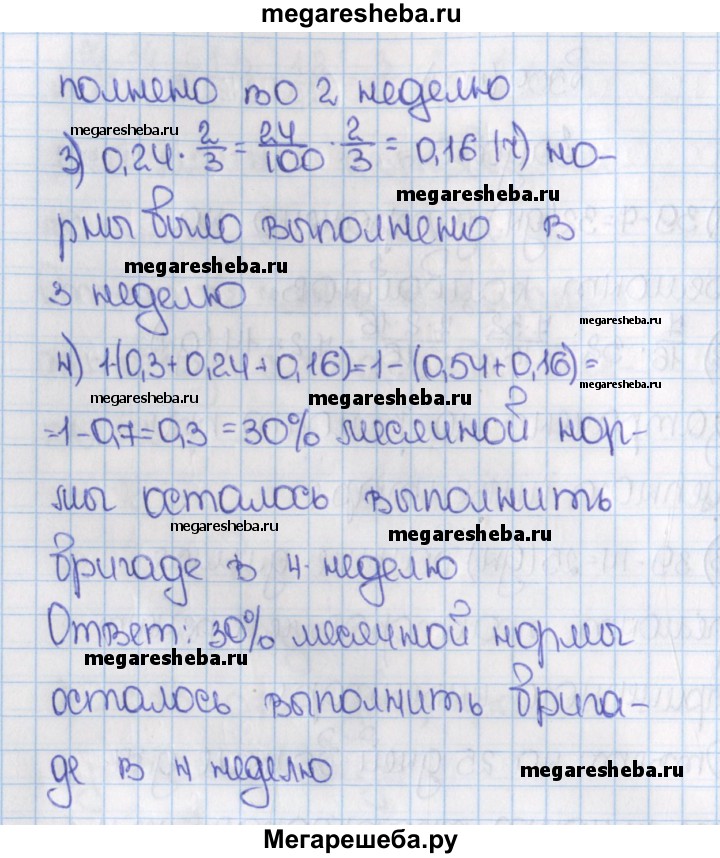 megaresheba.ru
полнено во 2 неделю
megaresheba.ru
3) 0,24 · 2/3 = 24/100 · 2/3 = 0,16 (ч) но-
megaresheba.ru
рмы было выполнено в
megaresheba.ru
3 неделю
megaresheba.ru
4) 1-(0,3+0,24+0,16)=1-(0,54+0,16)=
megaresheba.ru megaresheba.ru
=1-0,7=0,3=30% месячной нор-
мы осталось выполнить
megaresheba.ru megaresheba.ru
бригаде в 4 неделю
Ответ: 30% месячной нормы
megaresheba.ru
осталось выполнить брига-
де в 4 неделю
megaresheba.ru
Мегарешеба.ру